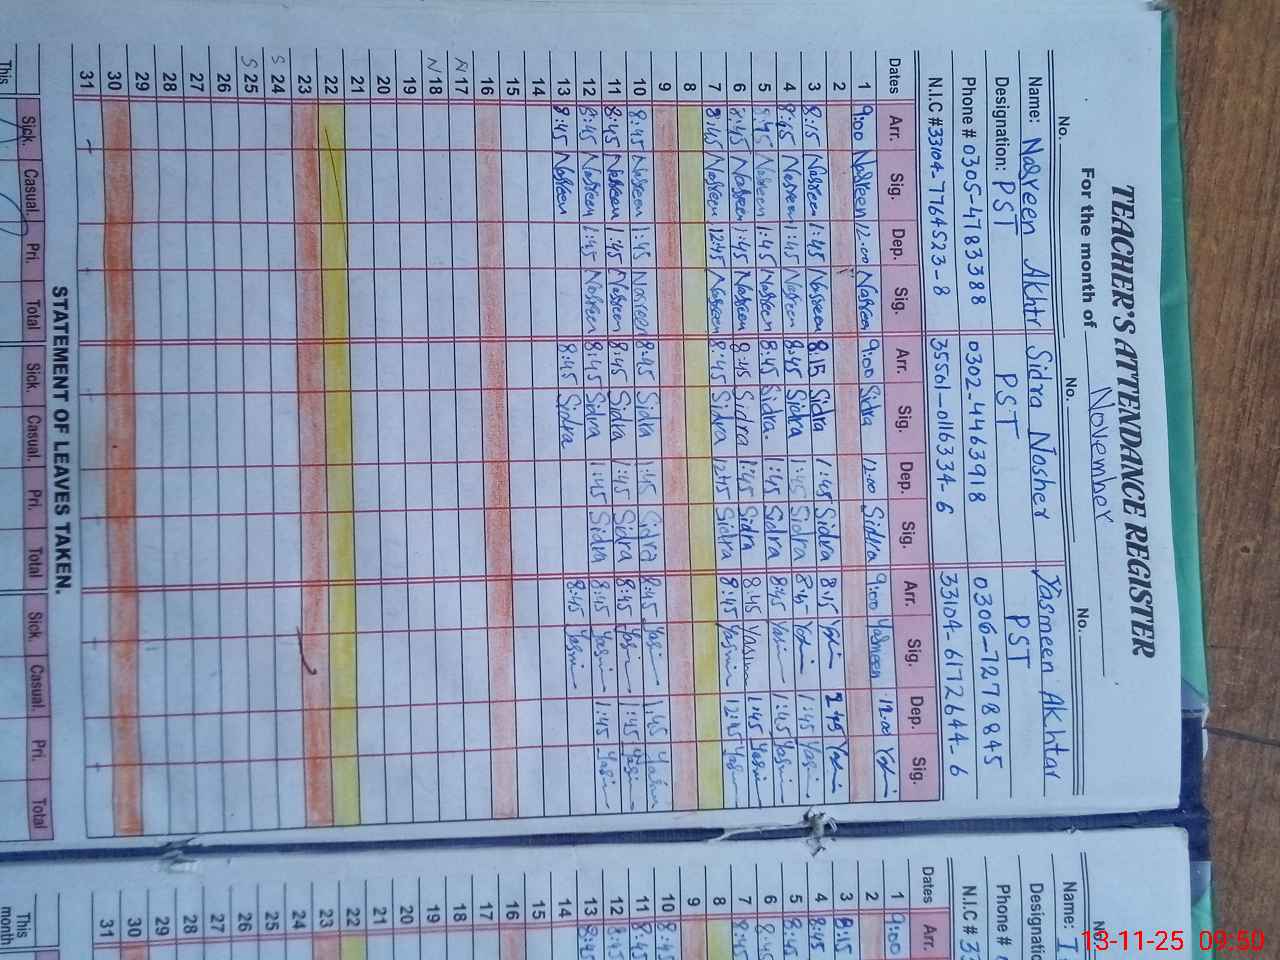 TEACHER'S ATTENDANCE REGISTER
For the month of November
No. No. No.
Name: Nasreen Akhtr Sidra Nosher Yasmeen Akhtar
Designation: PST PST PST
Phone # 0305-4783388 0302-4463918 0306-7278845
N.I.C # 33104-7764523-8 35501-0116334-6 33104-6172644-6
Dates Arr. Sig. Dep. Sig. Arr. Sig. Dep. Sig. Arr. Sig. Dep. Sig.
1 9:00 Nasreen 12:00 Nasreen 9:00 Sidra 12:00 Sidra 9:00 Yasmeen 12:00
2
3 8:15 Nasreen 1:45 Nasreen 8:15 Sidra 1:45 Sidra 8:15
4 8:45 Nasreen 1:45 Nasreen 8:45 Sidra 1:45 Sidra 8:45 1:45
5 8:45 Nasreen 1:45 Nasreen 8:45 Sidra 1:45 Sidra 8:45 1:45
6 8:45 Nasreen 1:45 Nasreen 8:45 Sidra 1:45 Sidra 8:45 1:45
7 8:45 Nasreen 12:45 Nasreen 8:45 Sidra 12:45 Sidra 8:45 12:45
8
9
10 8:45 Nasreen 1:45 Nasreen 8:45 Sidra 1:45 Sidra 8:45 1:45
11 8:45 Nasreen 1:45 Nasreen 8:45 Sidra 1:45 Sidra 8:45 1:45
12 8:45 Nasreen 1:45 Nasreen 8:45 Sidra 1:45 Sidra 8:45 1:45
13 8:45 Nasreen 8:45 Sidra 8:45
14
15
16
N 17
N 18
19
20
21
22
23
S 24
S 25
26
27
28
29
30
31
STATEMENT OF LEAVES TAKEN.
Sick. Casual. Pri. Total Sick. Casual. Pri. Total Sick. Casual. Pri. Total
This
No.
Name:
Phone #
N.I.C # 33
Dates Arr.
1 9:00
2
3 8:15
4 8:45
5 8:45
6 8:45
7 8:45
8
9
10 8:45
11 8:45
12 8:45
13 8:45
14
15
16
17
18
19
20
21
22
23
24
25
26
27
28
29
30
31
This month
Sick.
13-11-25 09:50